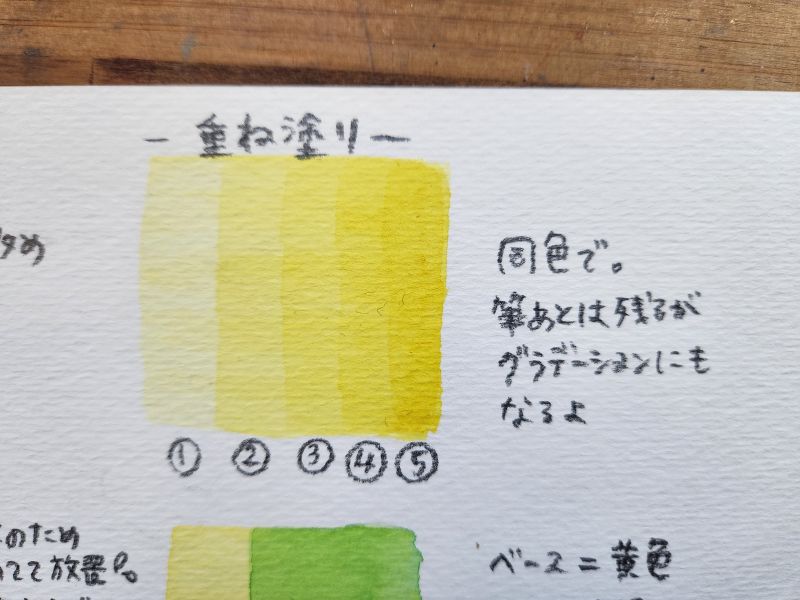 ー重ね塗りー
タめ
同色で。
筆あとは残るが
グラデーションにも
なるよ
① ② ③ ④ ⑤
のため
てて放置し。
ベース=黄色